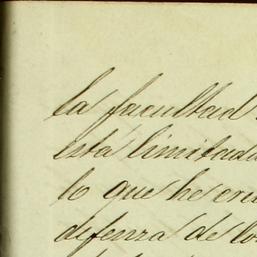 la facultad
está limitada
lo que he cre
defenza de lo